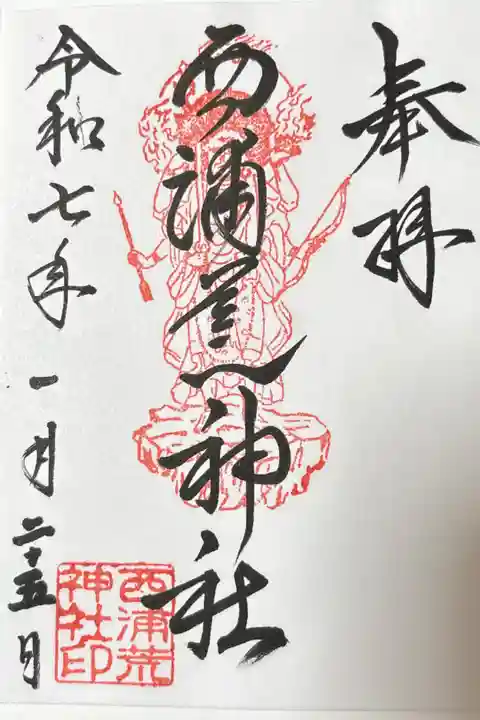 奉拝
西浦荒神社
令和七年一月二十五日
西浦荒
神社印